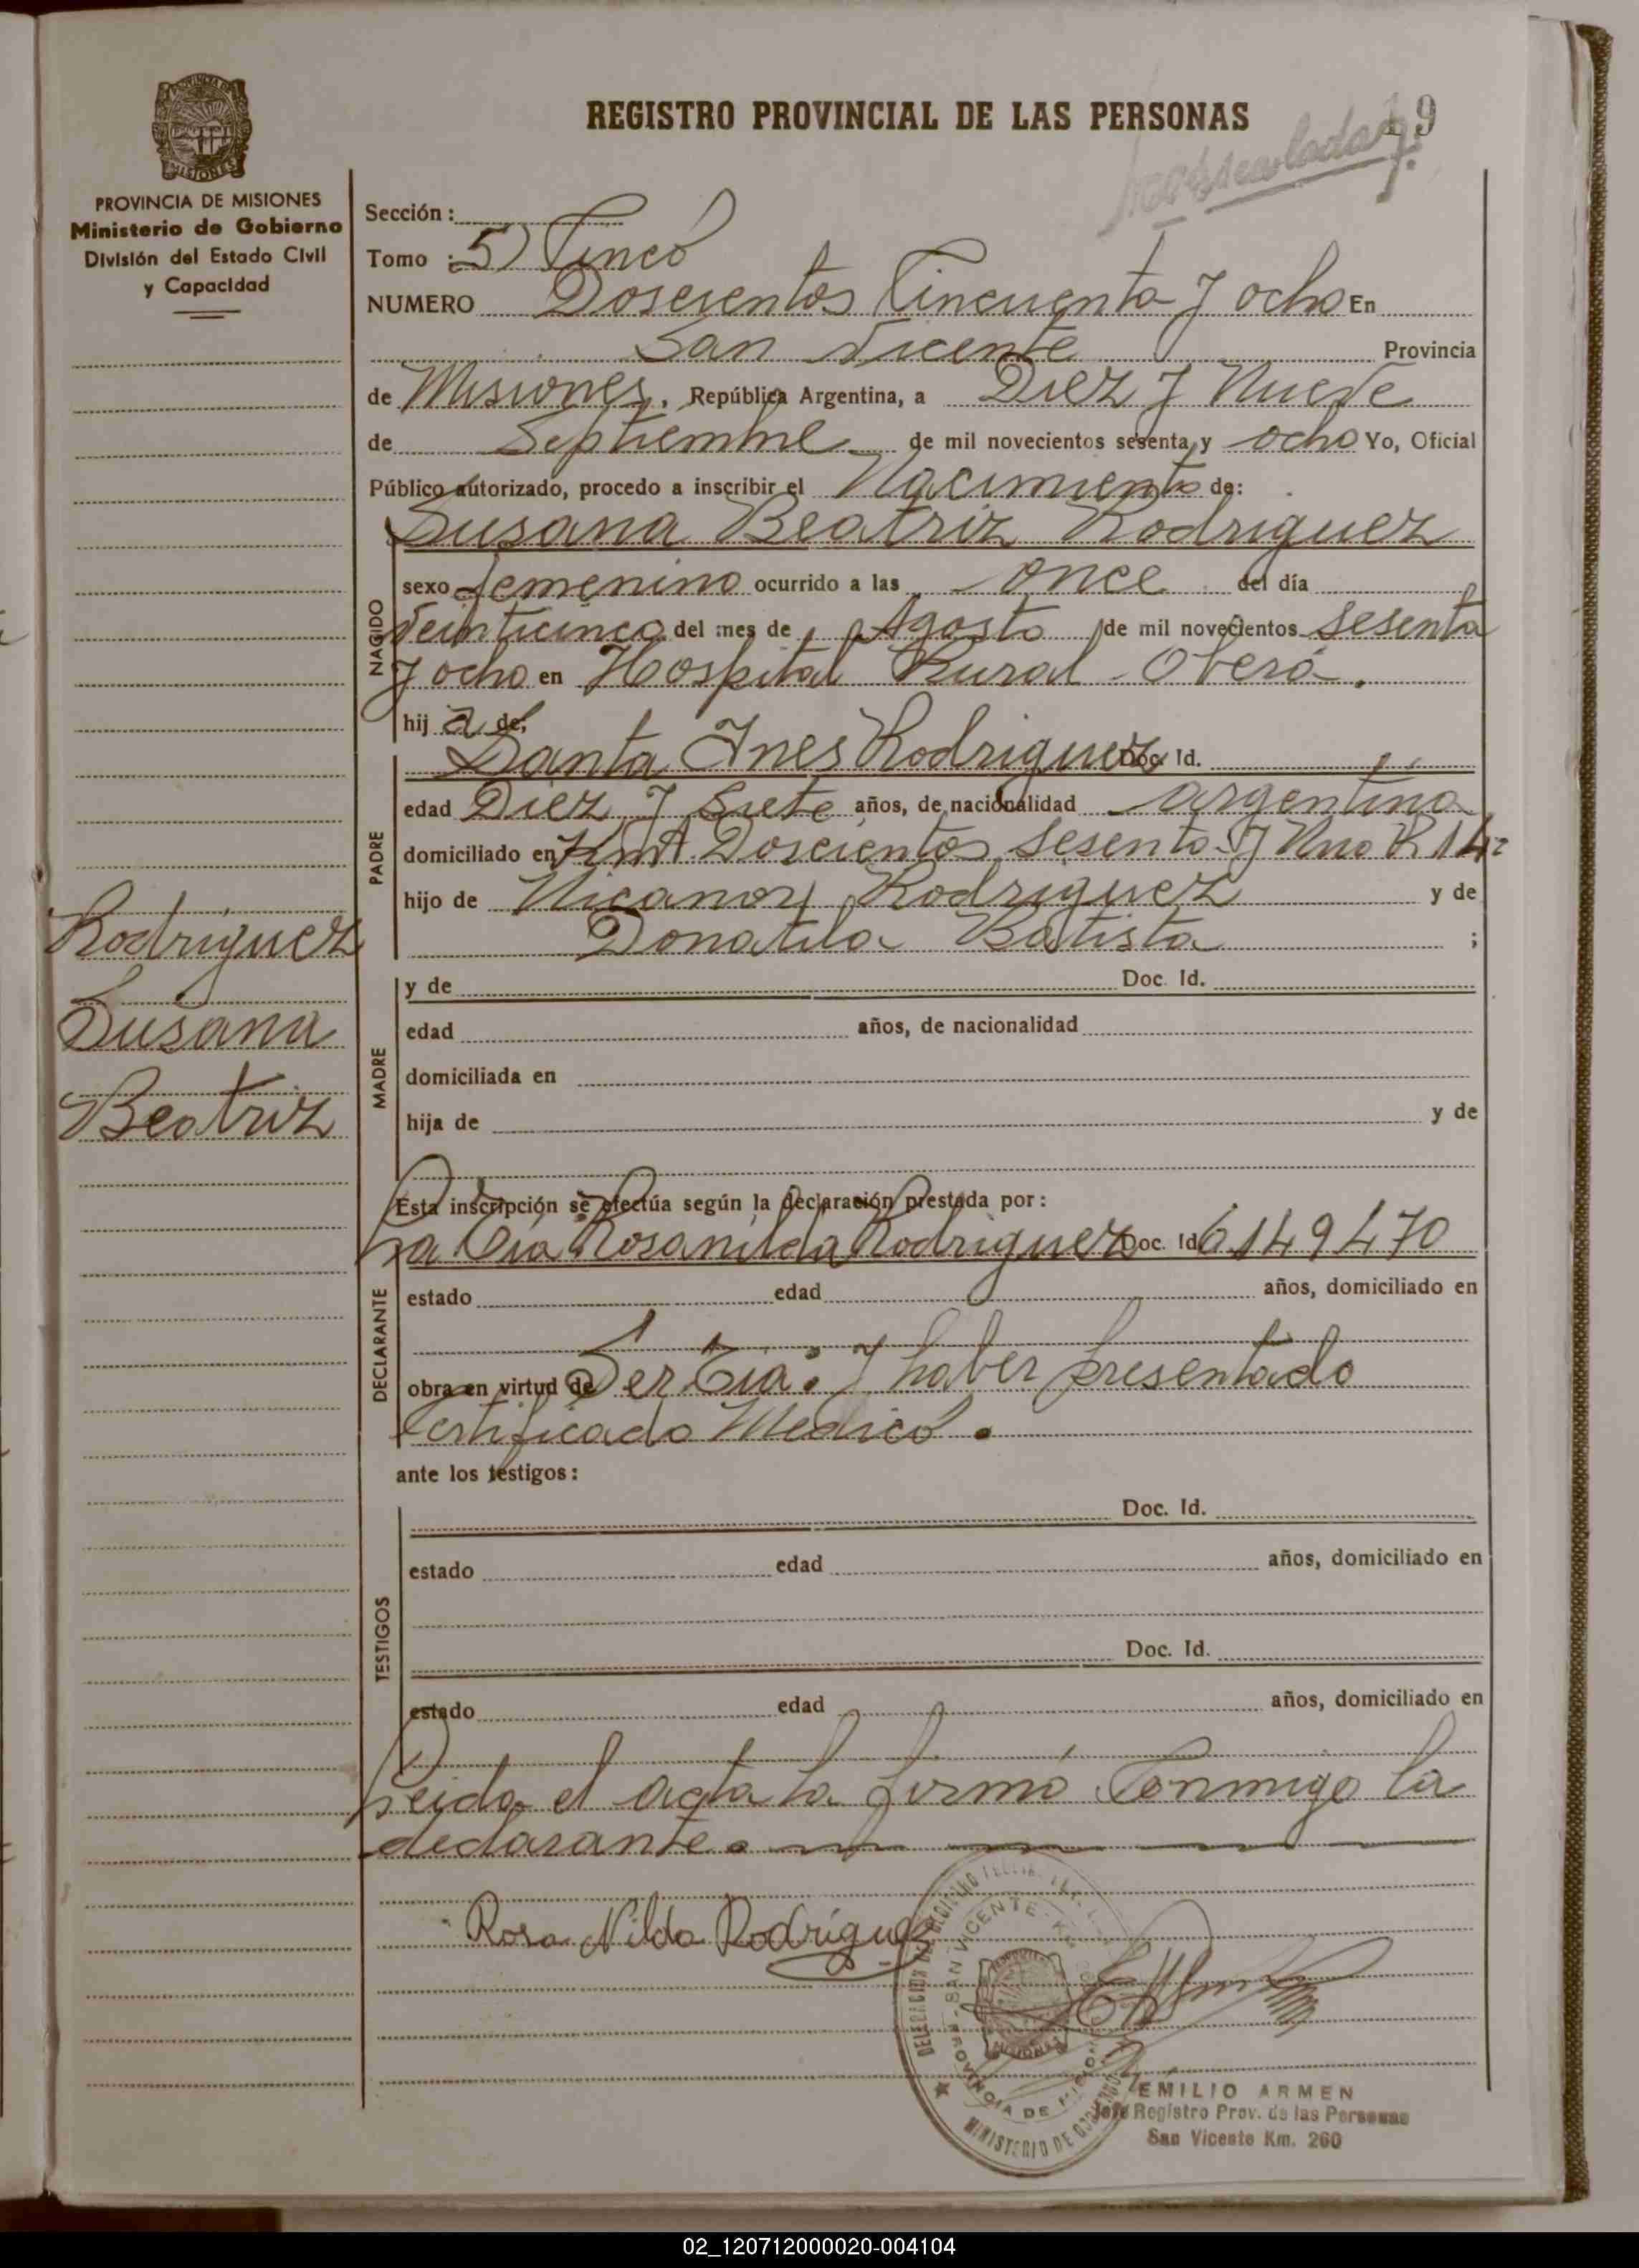 REGISTRO PROVINCIAL DE LAS PERSONAS
19
PROVINCIA DE MISIONES
Ministerio de Gobierno
División del Estado Civil
y Capacidad
Sección :
Tomo : 5) Cinco
NUMERO Doscientos Cincuenta y ocho En
San Vicente Provincia
de Misiones, República Argentina, a Diez y Nueve
de Septiembre de mil novecientos sesenta y ocho Yo, Oficial
Público autorizado, procedo a inscribir el Nacimiento de:
Susana Beatriz Rodriguez
NACIDO
sexo femenino ocurrido a las once del día
Veinticinco del mes de Agosto de mil novecientos sesenta
y ocho en Hospital Rural - Oberá.
hij a de:
PADRE
Santa Ines Rodriguez Doc. Id.
edad Diez y Siete años, de nacionalidad argentina
domiciliado en Doscientos Sesenta y Uno R 14
hijo de Nicanor Rodriguez y de
Donatila Batista ;
Rodriguez
Susana
Beatriz
MADRE
y de Doc. Id.
edad años, de nacionalidad
domiciliada en
hija de y de
Esta inscripción se efectúa según la declaración prestada por :
DECLARANTE
La Tia Rosanilda Rodriguez Doc. Id 6.149470
estado edad años, domiciliado en
obra en virtud de Ser Tia. y haber presentado
Certificado Medico.
ante los testigos :
TESTIGOS
Doc. Id.
estado edad años, domiciliado en
Doc. Id.
estado edad años, domiciliado en
Leida el acta la firmó Conmigo la
declarante.
Rosa Nilda Rodriguez
SAN VICENTE
PROVINCIA DE
MINISTERIO DE GOBIERNO
EMILIO ARMEN
Jefe Registro Prov. de las Personas
San Vicente Km. 260
02_120712000020-004104